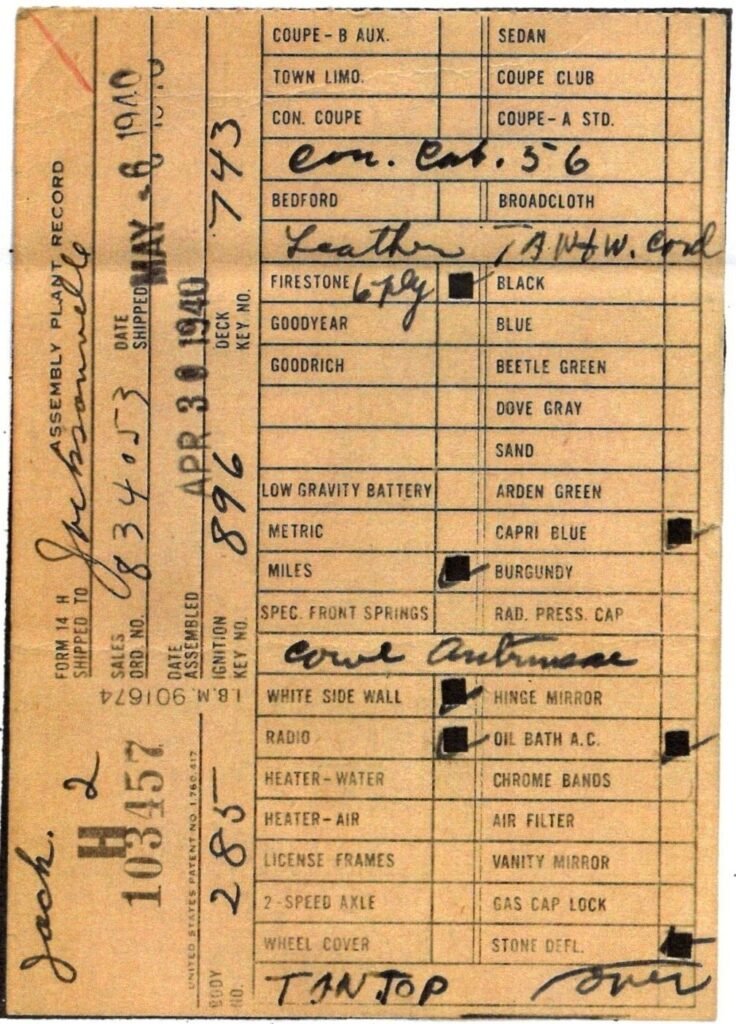 ASSEMBLY PLANT RECORD
FORM 14 H
SHIPPED TO Jacksonville
SALES ORD NO. 834053 DATE SHIPPED MAY - 6 1940
DATE ASSEMBLED APR 30 1940
IGNITION KEY NO. 896 DECK KEY NO. 743
I.B.M. 901674
Jack. 2
H
103457
UNITED STATES PATENT NO. 1,760,417
BODY NO. 285
COUPE - B AUX. SEDAN
TOWN LIMO. COUPE CLUB
CON. COUPE COUPE - A STD.
Con. Cab. 56
BEDFORD BROADCLOTH
Leather TAN & W. Cord
FIRESTONE 6 ply BLACK
GOODYEAR BLUE
GOODRICH BEETLE GREEN
DOVE GRAY
SAND
LOW GRAVITY BATTERY ARDEN GREEN
METRIC CAPRI BLUE
MILES BURGUNDY
SPEC. FRONT SPRINGS RAD. PRESS. CAP
Cowl
WHITE SIDE WALL HINGE MIRROR
RADIO OIL BATH A.C.
HEATER - WATER CHROME BANDS
HEATER - AIR AIR FILTER
LICENSE FRAMES VANITY MIRROR
2 - SPEED AXLE GAS CAP LOCK
WHEEL COVER STONE DEFL.
TAN TOP over